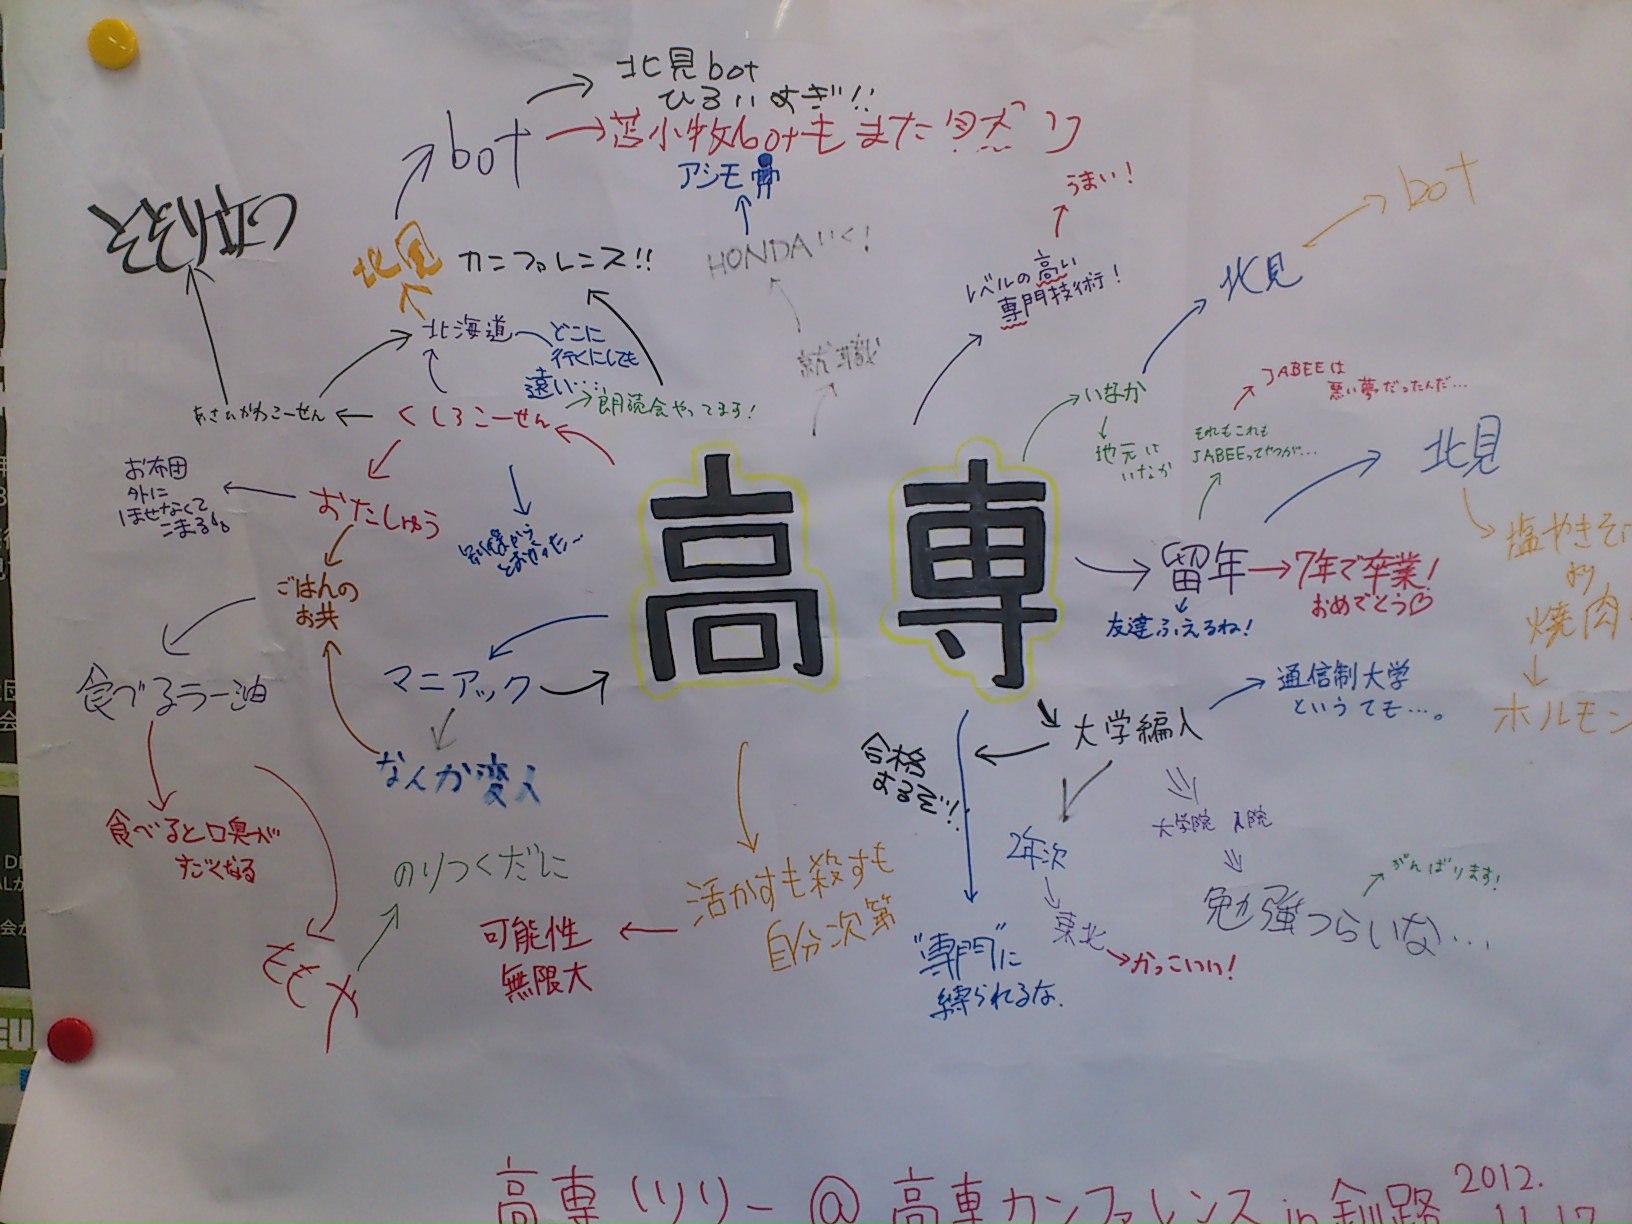 北見bot
ひろいすぎ!!
bot
苫小牧botもまた
アシモ
うまい!
bot
北見
カンファレンス!!
HONDAいく!
レベルの高い
専門技術!
北見
北海道
どこに
行くにしても
遠い…
朗読会やってます!
あさひかわこーせん
くしろこーせん
いなか
地元は
いなか
JABEEは
悪い夢だったんだ…
それもこれも
JABEEってやつが…
北見
お布団
外に
ほせなくて
こまる
おたしゅう
高専
塩やきそば
焼肉
ホルモン
留年
7年で卒業!
おめでとう♡
友達ふえるね!
ごはんの
お共
食べるラー油
マニアック
なんか変人
通信制大学
というても…。
大学編入
合格
するぞ!!
大学院 入院
2年次
東北
かっこいい!
勉強つらいな…
がんばります!
食べると口臭が
すごくなる
のりつくだに
ももや
活かすも殺すも
自分次第
可能性
無限大
"専門"に
縛られるな.
高専ツリー@高専カンファレンス in 釧路
2012.
11.17